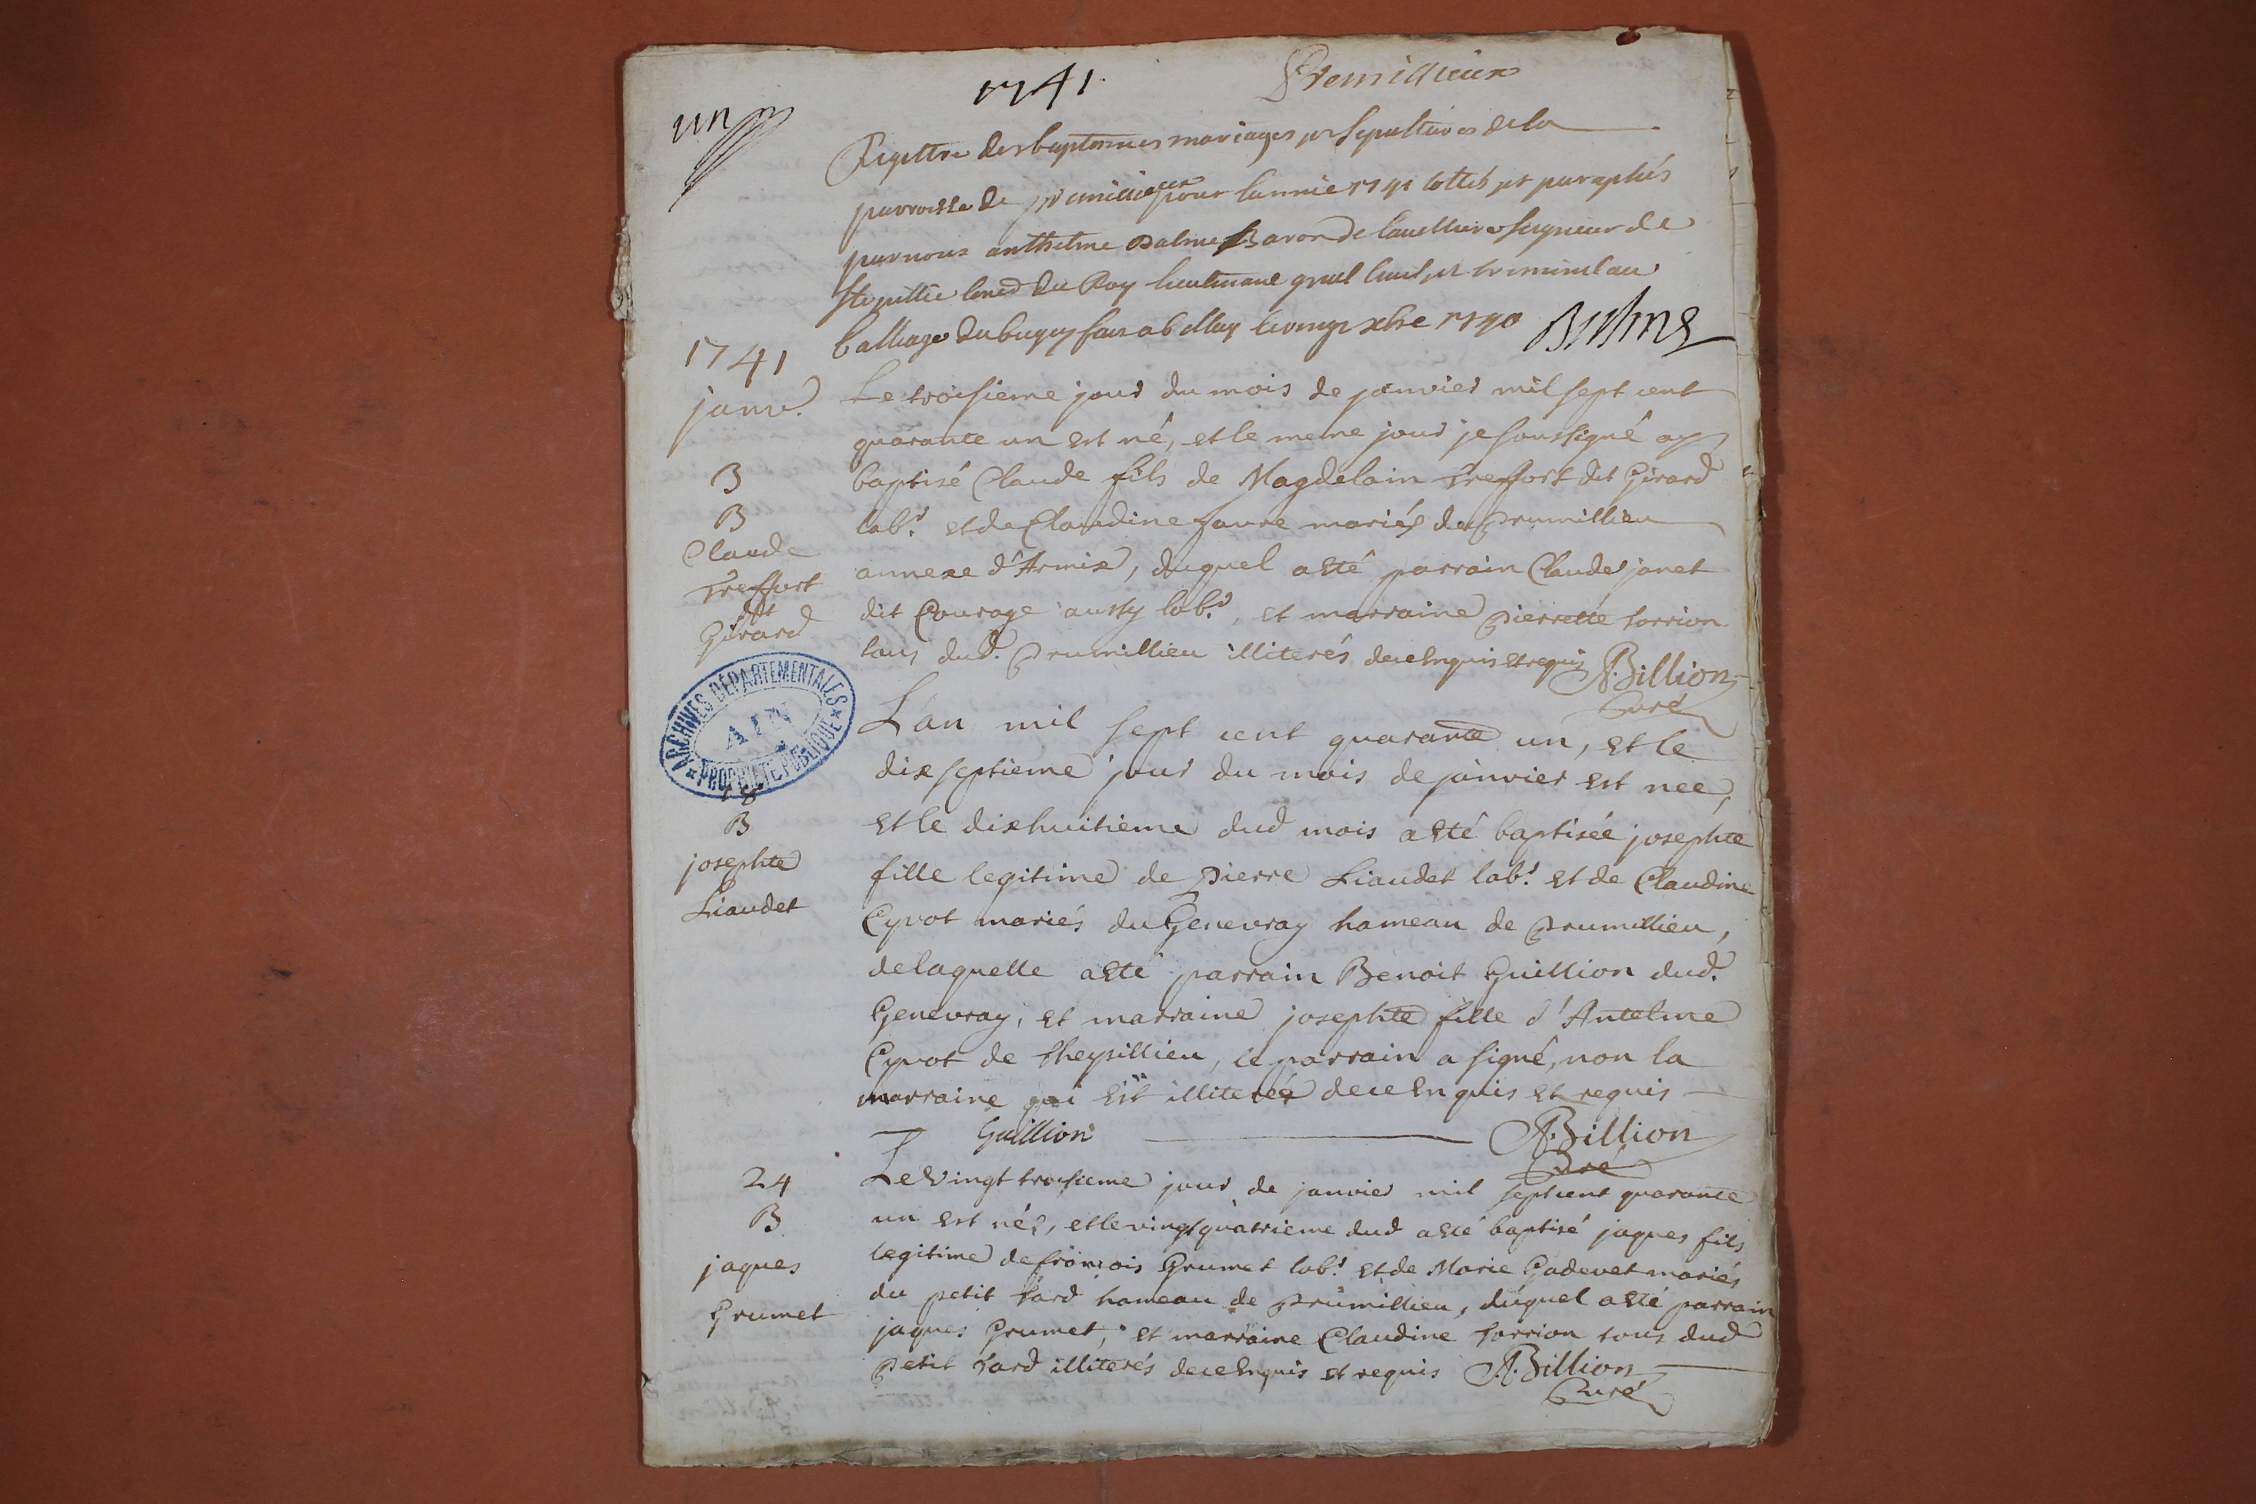 1741.
Premillieux
un
Registre des baptesmes mariages et sepultures de la
parroisse de premillieux pour lannée 1741 cottés et paraphés
par nous anthelme Balme Baron de seigneur de
Ste jullie Conser du Roy lieutenant gnal Civil et criminel au
balliage du bugey fait a belley le onze xbre 1740 Balme
1741
janvr.
Le troisieme jour du mois de janvier mil sept cent
quarante un est né, et le meme jour je soussigné ay
3
baptisé Claude fils de Magdelain Treffort dit Girard
B
labr. et de Claudine favre mariés de Prumillieu
Claude
annexe d'Armix, duquel a eté parrain Claude janet
Treffort
dit
dit Courage aussy labr., et marraine Pierrette Torrion
Girard
tous dud. Prumillieu illiterés de ce Enquis et requis A. Billion
Curé
ARCHIVES DÉPARTEMENTALES
AIN
PROPRIÉTÉ PUBLIQUE
L'an mil sept cent quarante un, et le
dix septieme jour du mois de janvier est nee,
18
B
et le dixhuitieme dud mois a eté baptisée josephte
josephte
fille legitime de Pierre Liaudet labr. et de Claudine
Liaudet
Cyvot mariés du Genevray hameau de Prumillieu,
de laquelle a eté parrain Benoit Guillion dud.
Genevray, et marraine josephte fille d'Antelme
Cyvot de Theysillieu, le parrain a signé, non la
marraine qui est illiterée de ce Enquis et requis
Guillion A. Billion
Curé
24
Le vingt troisieme jour de janvier mil sept cent quarante
B
un est né, et le vingt quatrieme dud a eté baptisé jaques fils
jaques
legitime de francois Grumet labr. et de Marie Gadevet mariés
Grumet
du petit Tard hameau de Prumillieu, duquel a eté parrain
jaques Grumet, et marraine Claudine Torrion tous dud
Petit Tard illiterés de ce Enquis et requis A. Billion
Curé